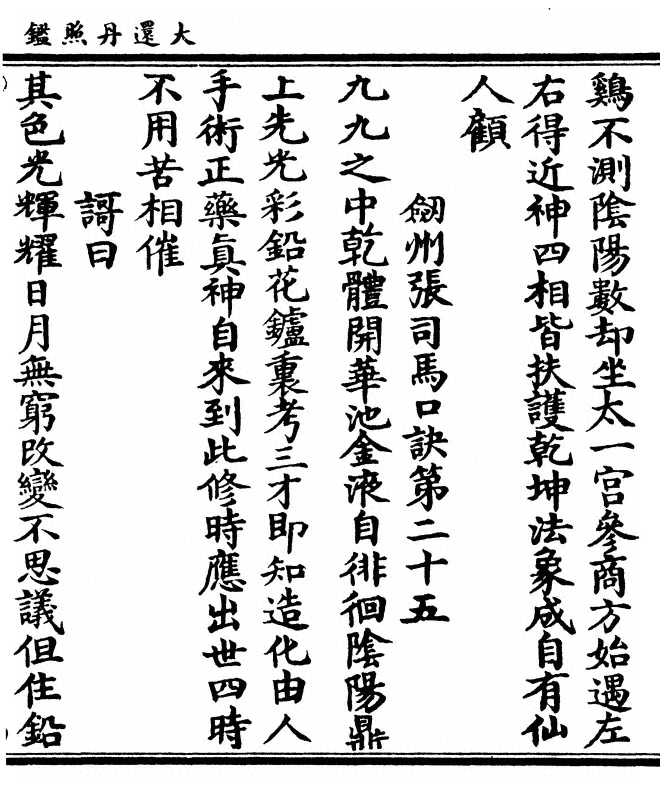 大還丹照鑑
鷄不測陰陽數却坐太一宮參商方始遇左
右得近神四相皆扶護乾坤法象成自有仙
人顧
劒州張司馬口訣第二十五
九九之中乾體開華池金液自徘徊陰陽鼎
上先光彩鉛花鑪裏考三才即知造化由人
手術正藥眞神自來到此修時應出世四時
不用苦相催
謌曰
其色光輝耀日月無窮改變不思議但住鉛